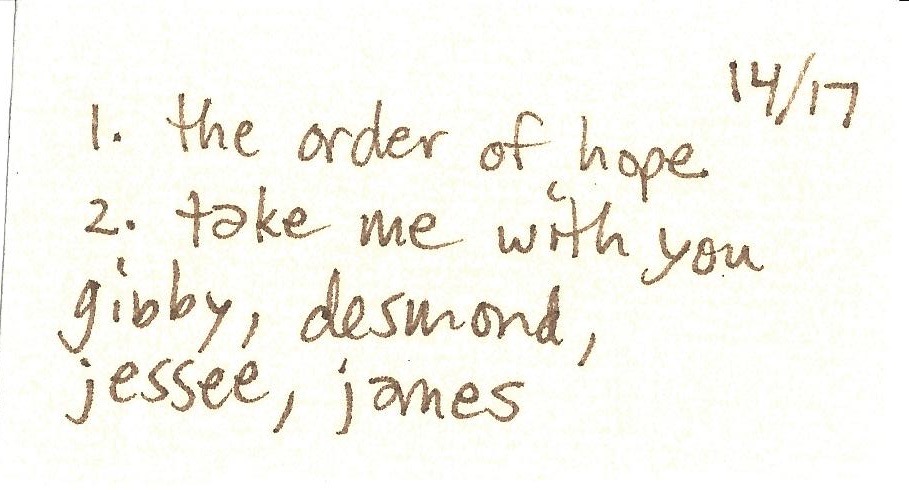 14/17
1. the order of hope
2. take me with you
gibby, desmond,
jessee, james